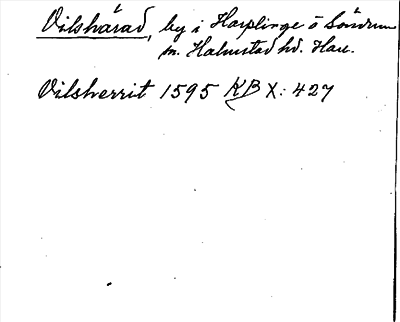 Vilshärad, by i Harplinge o Söndrum
sn. Halmstad hd. Hall.
Vilsherrit 1595 KB X: 427